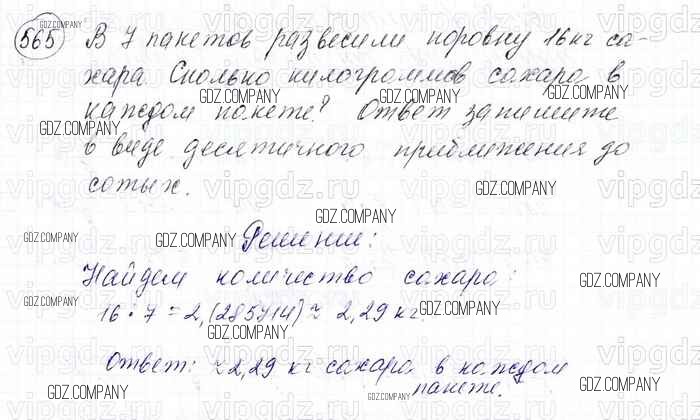 565 В 7 пакетов развесили поровну 16 кг са-
хара. Сколько килограммов сахара в
каждом пакете? Ответ запишите
в виде десятичного приближения до
сотых.
Решение:
Найдем количество сахара:
16 : 7 = 2,(285714) ≈ 2,29 кг.
Ответ: ≈ 2,29 кг сахара в каждом
пакете.
GDZ.COMPANY
vipgdz.ru